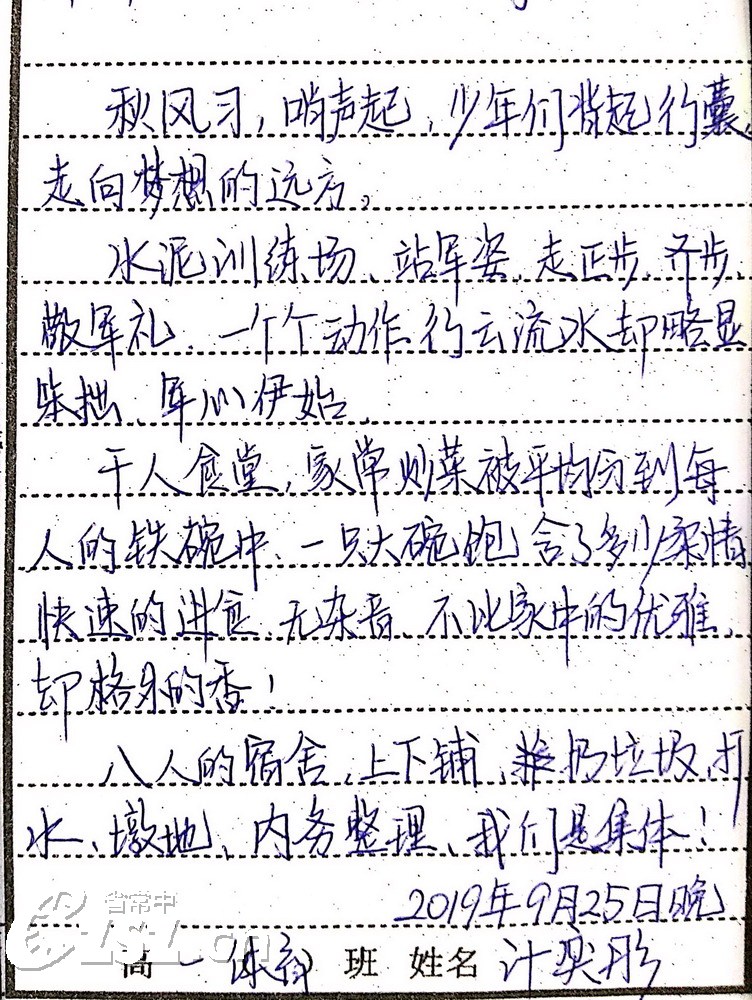 秋风习,哨声起,少年们背起行囊,
走向梦想的远方。
水泥训练场、站军姿、走正步、齐步、
敬军礼、一个个动作行云流水却略显
笨拙、军训伊始、
千人食堂,家常炒菜被平均分到每
人的铁碗中、一只大碗饱含了多少柔情
快速的进食、无杂音、不比家中的优雅
却格外的香!
八人的宿舍、上下铺、扔垃圾、打
水、墩地、内务整理、我们是集体!
2019年9月25日晚
省常中
高一 体育 班 姓名 计奕彤